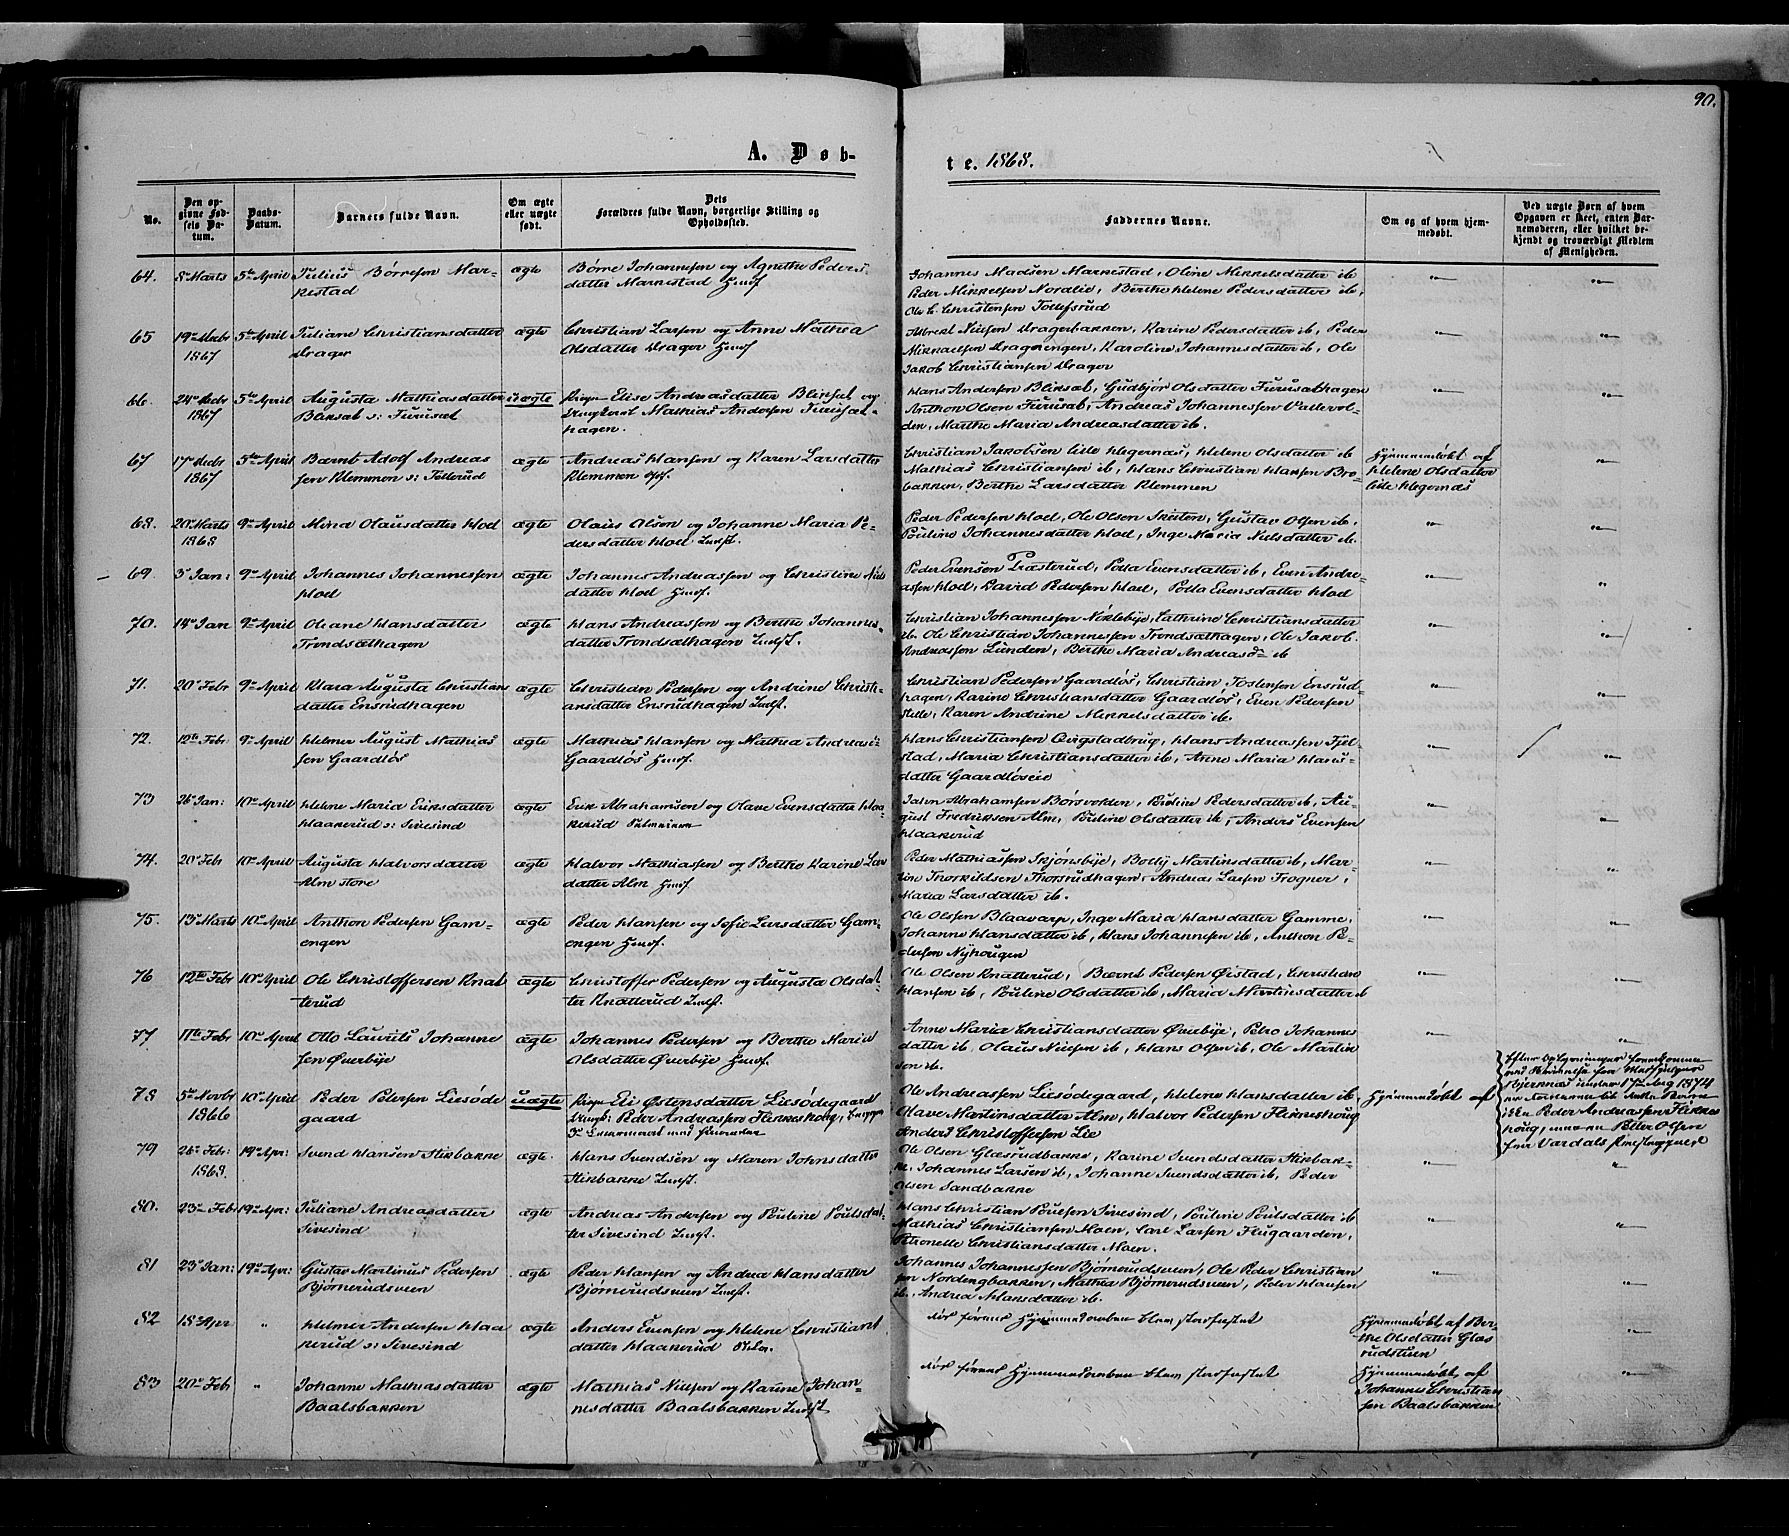 90.
A. Døb-
te. 1868.
No.
Den op-
givne Fød-
sels Da-
tum.
Daabs-
Datum.
Barnets fulde Navn.
Om ægte
eller uægte
født.
Dets
Forældres fulde Navn, borgerlige Stilling og
Opholdssted.
Faddernes Navne.
Om og af hvem hjem-
medøbt.
Ved uægte Børn af hvem
Opgaven er skeet, enten Bar-
nemoderen, eller hvilket be-
kjendt og troværdigt Medlem
af Menigheden.
64. 8de Marts 5te April Julius Børresen Mar-
kestad
ægte
Børre Johannesen og Agnethe Peders-
datter Markestad Huusf.
Johannes Madsen Markestad, Oline Mikkelsdatter ib
Peder Mikkelsen Nordlie, Berthe Helene Pedersdatter ib,
Ole C. Christensen Tollefsrud
65 19de Decbr 5te April Juliane Christiansdatter
1867 Drager
ægte
Christian Larsen og Anne Mathea
Olsdatter Drager Huusf
Albrekt Nilsen Dragerbakken, Karine Pedersdatter ib, Peder
Mikkaelsen Dragerengen, Karoline Johannesdatter ib, Ole
Jakob Christiansen Drager
66. 24de Decbr 5te April Augusta Mathiasdatter
1867 Bliksæt s: Furusæt
uægte
Pigen Elise Andreasdatter Bliksæt og
Ungkarl Mathias Andersen Furusæt-
hagen.
Hans Andersen Bliksæt, Gudbjør Olsdatter Furusæthagen
Anthon Olsen Furusæt, Andreas Johannessen Vallevol-
den, Marthe Maria Andreasdatter ib.
67 17de Decbr 5te April Bernt Adolf Andreas
1867 sen Klemmen s: Fællerud
ægte
Andreas Hansen og Karen Larsdatter
Klemmen
Christian Jakobsen lille Hegernæs, Helene Olsdatter ib
Mathias Christiansen ib, Hans Christian Hansen Bro-
bakken, Berthe Larsdatter Klemmen
Hjemmedøbt af
Helene Olsdatter
lille Hegernæs
68. 20de Marts 9de April Mina Olausdatter Hoel
1868
ægte
Olaus Olsen og Johanne Maria Pe-
dersdatter Hoel Indst.
Peder Pedersen Hoel, Ole Olsen Skisten, Gustav Olsen ib,
Pouline Johannesdatter Hoel, Inge Maria Nielsdatter ib
69. 3 Jan: 9de April Johannes Johannessen
Hoel
ægte
Johannes Andreassen og Christine Nils
datter Hoel Huusf.
Peder Evensen Præsterud, Pella Evensdatter ib, Even Andre-
assen Hoel, David Pedersen Hoel, Pella Evensdatter Hoel
70. 14de Jan 9de April Oleane Hansdatter
Trondsæthagen
ægte
Hans Andreassen og Berthe Johannes-
datter Trondsæthagen Indst.
Christian Johannesen Nørlebye, Cathrine Christiansdatter
ib, Ole Christian Johannesen Trondsæthagen, Ole Jakob
Andreassen Lunden, Berthe Maria Andreasdr ib
71. 20de Febr 9de April Klara Augusta Christians
datter Ensrudhagen
ægte
Christian Pedersen og Andrine Christi-
ansdatter Ensrudhagen Indst.
Christian Pedersen Gaardløs, Christian Tostensen Ensrud-
hagen, Karine Christiansdatter Gaardløs, Even Pedersen
Karen Andrine Mikkelsdatter ib.
72. 12te Febr 9de April Helmer August Mathias
sen Gaardløs
ægte
Mathias Hansen og Mathea Andreasd
Gaardløs Huusf.
Hans Christiansen Qvigstadbrug, Hans Andreassen Fjel-
stad, Maria Christiansdatter ib, Anne Maria Hans-
datter Gaardløseie
73 26de Jan: 10de April Helene Maria Eriksdatter
Haakerud s: Sivesind
ægte
Erik Abrahamsen og Olave Evensdatter Haa-
kerud
Iver Abrahamsen Børsvolden, Pauline Pedersdatter ib, Au-
gust Fredriksen Alm, Pauline Olsdatter ib, Anders Evensen
Haakerud
74. 20de Febr 10de April Augusta Halvorsdatter
Alm store
ægte
Halvor Mathiassen og Berthe Karine Lar
datter Alm Huusf
Peder Mathiassen Skjønsbye, Bolly Martinsdatter ib, Mar-
tine Thorkildsen Thorsrudhagen, Andreas Larsen Frogner,
Maria Larsdatter ib.
75. 13de Marts 10de April Anthon Pedersen Gam-
engen
ægte
Peder Hansen og Sofie Larsdatter Gam-
engen Huusf.
Ole Olsen Blaavarp, Inge Maria Hansdatter Gamme,
Johanne Hansdatter ib, Hans Johannesen ib, Anthon Pe-
dersen Nyhougen
76 12te Febr 10de April Ole Christoffersen Knat
terud
ægte
Christoffer Pedersen og Augusta Olsdat-
ter Knatterud Indst.
Ole Olsen Knatterud, Bernt Pedersen Øistad, Christian
Hansen ib, Pouline Olsdatter ib, Maria Martinsdatter ib
77 11te Febr 10de April Otto Laurits Johanne
sen Øverbye
ægte
Johannes Pedersen og Berthe Maria
Olsdatter Øverbye Huusf.
Anne Maria Christiansdatter Øverbye, Petro Johannes
datter ib, Olaus Nilsen ib, Hans Olsen ib, Ole Martin
sen ib.
78 5te Novbr 10de April Peder Petersen Liesøde
1866 gaard
uægte
Pigen Eli Østensdatter Liesødegaard
Ungk: Peder Andreassen Flikkeshoug,
3die Leiermaal med
Ole Andreassen Liesødegaard, Helene Hansdatter ib,
Olave Martinsdatter Alm, Halvor Pedersen Flikkeshoug
Anders Christoffersen Lie
Hjemmedøbt af
Efter Oplysninger fremkommen
17de Aug 1874
er Faderen til dette Barn
ikke Peder Andreassen Flikkes
houg, men en Peter Olsen
fra Vardals Præstegjæld
79 26de Febr: 19de Apr: Svend Hansen Stikbakke
1868.
ægte.
Hans Svendsen og Maren Johnsdatter
Stikbakke Indst.
Ole Olsen Glæsrudbakke, Karine Svendsdatter Stikbak-
ke, Johannes Larsen ib, Johanne Svendsdatter ib, Peder
Olsen Sandbakke
80. 23de Feb 19de Apr: Juliane Andreasdatter
Sivesind
ægte
Andreas Andersen og Pouline Poulsdat-
ter Sivesind Indst.
Hans Christian Poulsen Sivesind, Pouline Poulsdatter ib
Mathias Christiansen Moen, Carl Larsen Flugaarden,
Petronelle Christiansdatter Moen.
81 23de Jan: 19de Apr: Gustav Martinus Pedersen
Bjørnerudsveen
ægte
Peder Hansen og Andrea Hansdatter
Bjørnerudsveen Indst.
Johannes Johannessen Bjørnerudsveen, Ole Peder Christian
sen Nordengbakken, Mathea Bjørnerudsveen, Peder Hansen
ib, Andrea Hansdatter ib.
82 18de Apr " Helmer Andersen Haa
kerud s: Sivesind
ægte
Anders Evensen og Helene Christians
datter Haakerud
død førend Hjemmedaaben blev stadfæstet
Hjemmedøbt af Ber-
the Olsdatter Glæs
rudstuen
83 20de Feb " Johanne Mathiasdatter
Baalsbakken
ægte
Mathias Nilsen og Karine Johan-
nesdatter Baalsbakken Indst
død førend Hjemmedaaben blev stadfæstet
Hjemmedøbt af
Johannes Christian
sen Baalsbakken